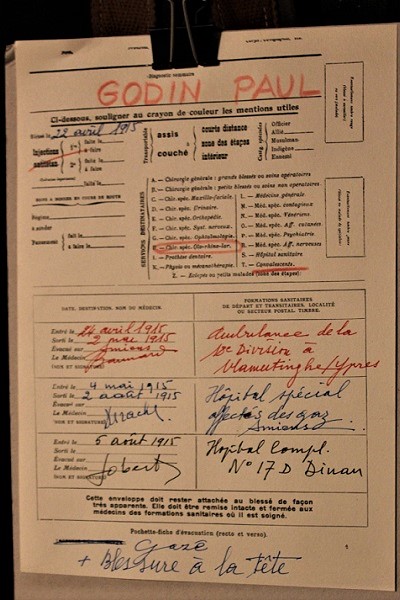 -Diagnostic sommaire
GODIN PAUL
Ci-dessous, souligner au crayon de couleur les mentions utiles
Blessé le 22 avril 1915
Injections antitétan.
1re faite le
à faire
2e faite le
à faire
Transportable
assis
couché
courte distance
zone des étapes
intérieur
Officier
Allié
Musulman
Indigène
Ennemi
Régime
à sonder
Pansement
fait le
à faire
SERVICES DESTINATAIRES
A. — Chirurgie générale : grands blessés ou soins opératoires
B. — Chirurgie générale : petits blessés ou soins non opératoires
C. — Chir. spéc. Maxillo-faciale.
D. — Chir. spéc. Urinaire.
E. — Chir. spéc. Orthopédie.
F. — Chir. spéc. Syst. nerveux.
G. — Chir. spéc. Ophtalmologie.
H. — Chir. spéc. Oto-rhino-lar.
I. — Prothèse dentaire.
K. — Physio ou mécanothérapie.
L. — Médecine générale
M. — Méd. spéc. contagieux
N. — Méd. spéc. Vénériens
O. — Méd. spéc. Aff. cutanées
P. — Méd. spéc. Psychiatrie
R. — Méd. spéc. Aff. nerveuses
S. — Hôpital sanitaire
T. — Convalescents.
Z. — Eclopés ou petits malades (zone des étapes)
DATE. DESTINATION. NOM DU MÉDECIN
FORMATIONS SANITAIRES
DE DÉPART ET TRANSITAIRES. LOCALITÉ
OU SECTEUR POSTAL. TIMBRE.
Entré le 24 avril 1915
Sorti le 2 mai 1915
Evacué sur Amiens
Le Médecin
(NOM ET SIGNATURE)
Ambulance de la
10e Division à
Vlamertinghe/Ypres
Entré le 4 mai 1915
Sorti le 2 août 1915
Evacué sur
Le Médecin
(NOM ET SIGNATURE)
Hôpital spécial
affectés des gaz
Amiens
Entré le 5 août 1915
Sorti le
Evacué sur
Le Médecin Jobert
(NOM ET SIGNATURE)
Hopital Compl.
N° 17 D Dinan
Cette enveloppe doit rester attachée au blessé de façon
très apparente. Elle doit être remise intacte et fermée aux
médecins des formations sanitaires où il est soigné.
Pochette-fiche d'évacuation (recto et verso).
1
Gazé
+ Blessure à la tête